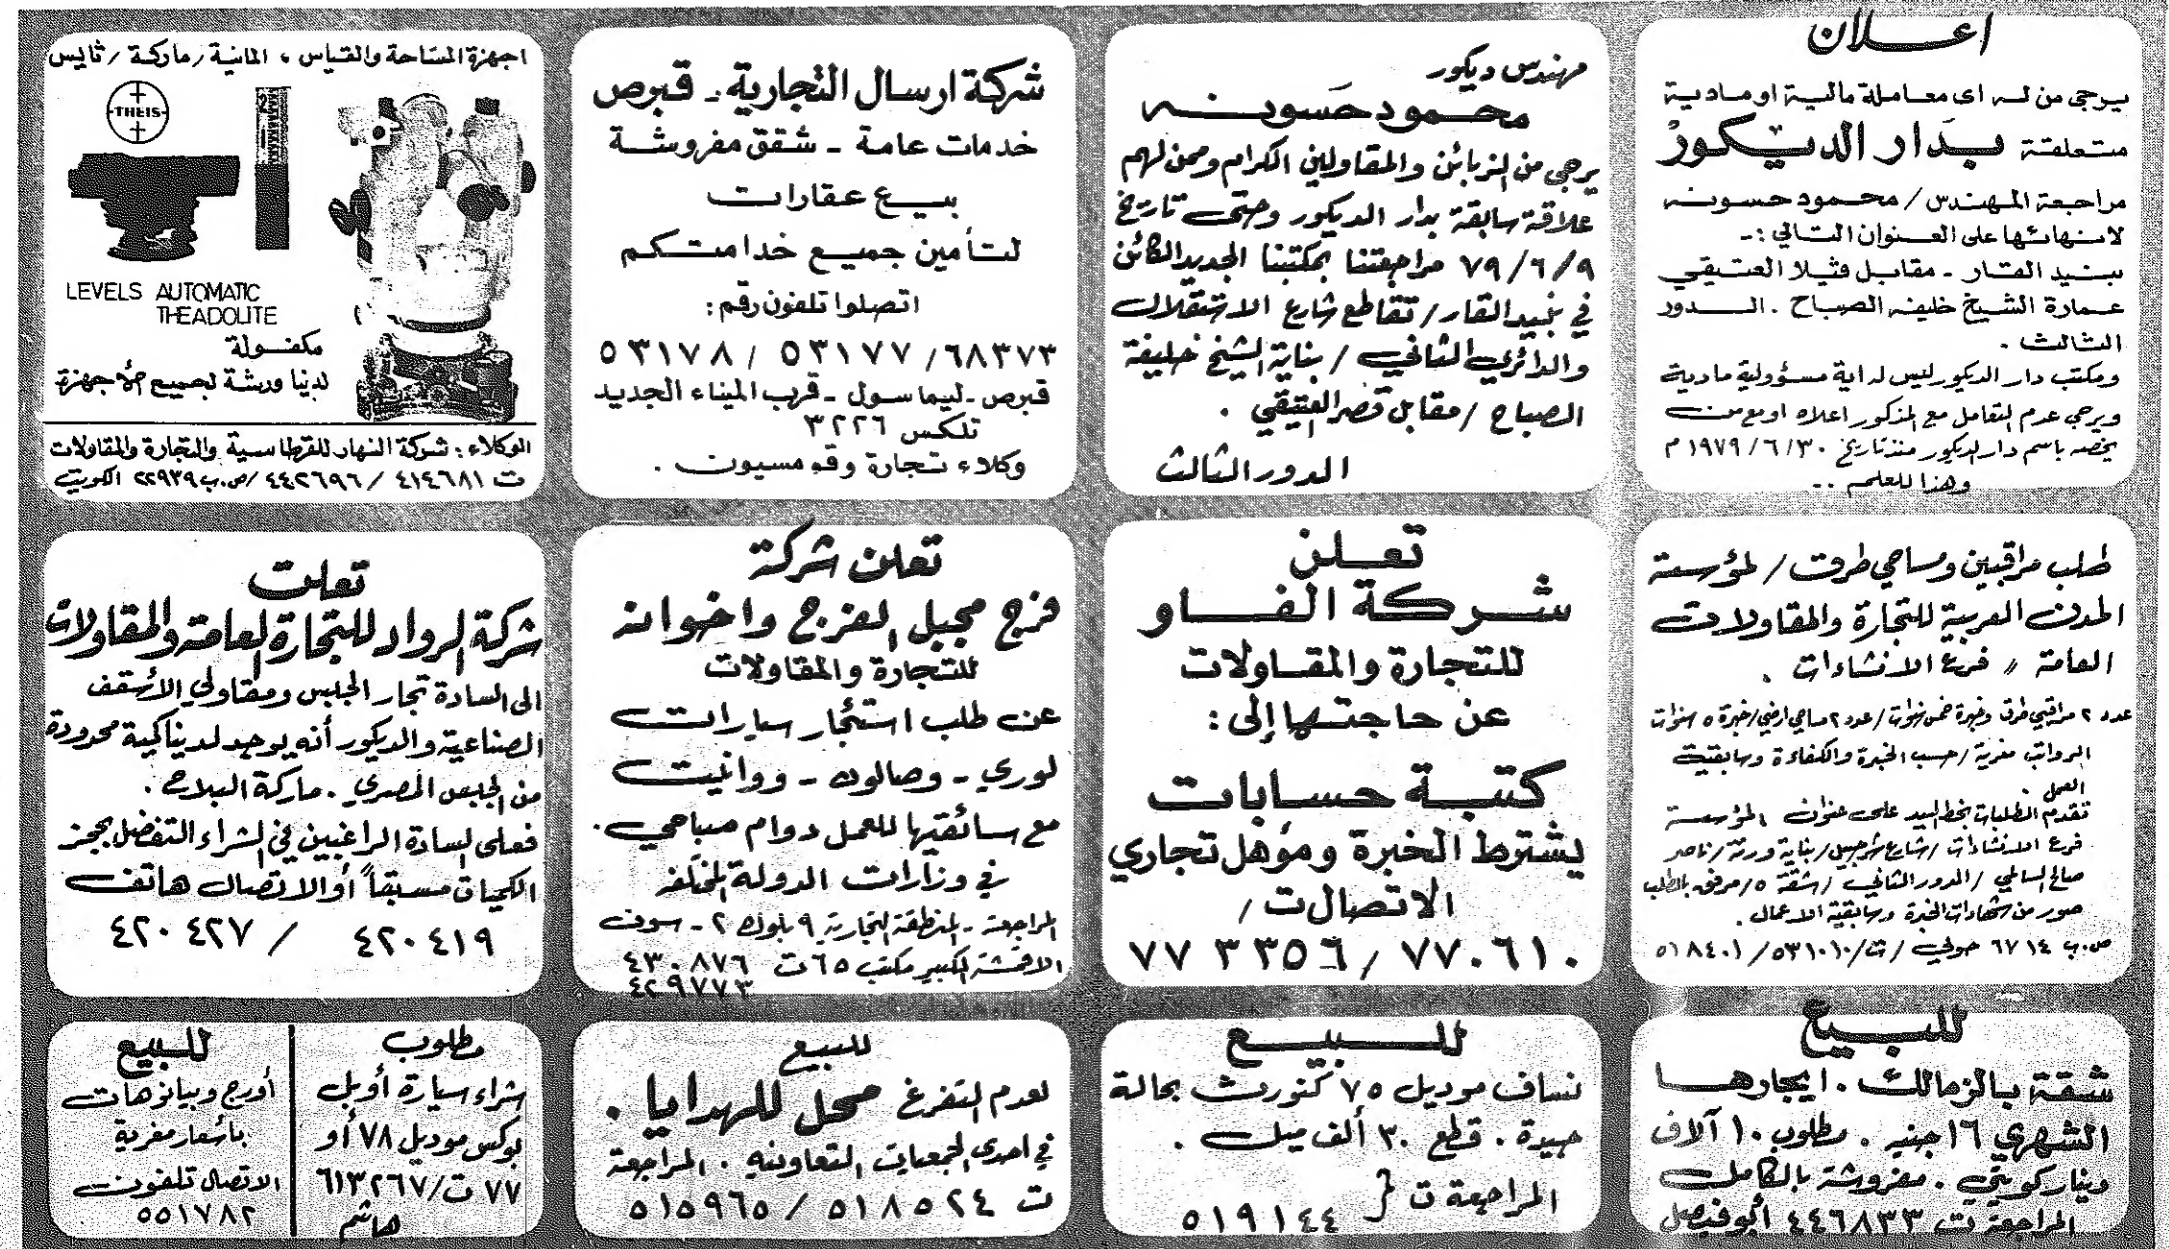 اعلان
يرجى من له اى معاملة مالية او مادية
متعلقة بدار الديكور
مراجعة المهندس / محمود حسونه
لانهائها على العنوان التالي :-
بنيد القار - مقابل فيلا العتيقي
عمارة الشيخ خليفه الصباح . الدور
الثالث .
ومكتب دار الديكور ليس له اية مسؤولية مادية
ويرجى عدم التعامل مع المذكور اعلاه او مع من
يخصه باسم دار الديكور منذ تاريخ ٣٠ /٦ / ١٩٧٩ م
وهذا للعلم ..
مهندس ديكور
محمود حسونه
يرجى من الزبائن والمقاولين الكرام وممن لهم
علاقة سابقة بدار الديكور وحتى تاريخ
٩ /٦ / ٧٩ مراجعتنا بمكتبنا الجديد الكائن
في بنيد القار / تقاطع شارع الاستقلال
والدائري الثاني / بناية الشيخ خليفة
الصباح / مقابل قصر العتيقي .
الدور الثالث
شركة ارسال التجارية - قبرص
خدمات عامة - شقق مفروشة
بيع عقارات
لتأمين جميع خدامتكم
اتصلوا تلفون رقم :
٦٨٣٧٣ / ٥٣١٧٧ / ٥٣١٧٨
قبرص - ليماسول - قرب الميناء الجديد
تلكس ٣٢٢٦
وكلاء تجارة وقومسيون .
اجهزة المساحة والقياس ، المانية / ماركة / ثايس
THEIS
2
LEVELS AUTOMATIC
THEADOLITE
مكفولة
لدينا ورشة لجميع الأجهزة
الوكلاء : شركة النهار للقرطاسية والتجارة والمقاولات
ت ٤١٤٦٨١ / ٤٤٢٦٩٦ / ص.ب ٢٢٩٣٩ الكويت
طلب مراقبين ومساحي طرق / لمؤسسة
المدن العربية للتجارة والمقاولات
العامة // فرع الانشاءات .
عدد ٢ مراقبي طرق وخبرة خمس سنوات / عدد ٢ مساحي اراضي / خبرة ٥ سنوات
الرواتب مغرية / حسب الخبرة والكفاءة وسابقية
العمل .
تقدم الطلبات بخط اليد على عنوان المؤسسة
فرع الانشاءات / شارع شرحبيل / بناية ورثة / ناصر
صالح السالمي / الدور الثاني / شقة ٥ / مرفق بالطلب
صور من شهادات الخبرة وسابقية الاعمال .
ص.ب ٦٧١٤ حولي / ت / ٥٣١٠١٠ / ٥١٨٤٠١
تعلن
شركة الفاو
للتجارة والمقاولات
عن حاجتها إلى :
كتبة حسابات
يشترط الخبرة ومؤهل تجاري
الاتصال ت /
٧٧٠٦١٠ / ٧٧٣٣٥٦
تعلن شركة
فرج مجبل الفرج واخوانه
للتجارة والمقاولات
عن طلب استئجار سيارات
لوري - وصالون - ووانيت
مع سائقيها للعمل دوام صباحي .
في وزارات الدولة المختلفه
المراجعة - المنطقة التجارية ٩ بلوك ٢ - سوق
الاقمشة الكبير مكتب ٦٥ ت ٤٣٠٨٧٦
٤٢٩٧٧٣
تعلن
شركة الرواد للتجارة العامة والمقاولات
الى السادة تجار الجبس ومقاولي الأسقف
الصناعية والديكور أنه يوجد لدينا كمية محدودة
من الجبس المصري . ماركة البلاح .
فعلى السادة الراغبين في الشراء التفضل بحجز
الكميات مسبقاً أو الاتصال هاتف
٤٢٠٤١٩ / ٤٢٠٤٢٧
للبيع
شقة بالزمالك . ايجارها
الشهري ١٦ جنيه . مطلوب ١٠ آلاف
دينار كويتي . مفروشة بالكامل
المراجعة ت ٤٤٦٨٣٣ أبو فيصل
للبيع
نساف موديل ٧٥ كنورث بحالة
جيدة . قطع ٣٠ ألف ميل .
المراجعة ت
٥١٩١٤٤
للبيع
لعدم التفرغ محل للهدايا .
في احدى الجمعيات التعاونيه . المراجعة
ت ٥١٨٥٢٤ / ٥١٥٩٦٥
مطلوب
شراء سيارة أوبل
بوكس موديل ٧٨ أو
٧٧ ت / ٦١٣٢٦٧
هاشم
للبيع
أورج وبيانوهات
بأسعار مغرية
الاتصال تلفون
٥٥١٧٨٢